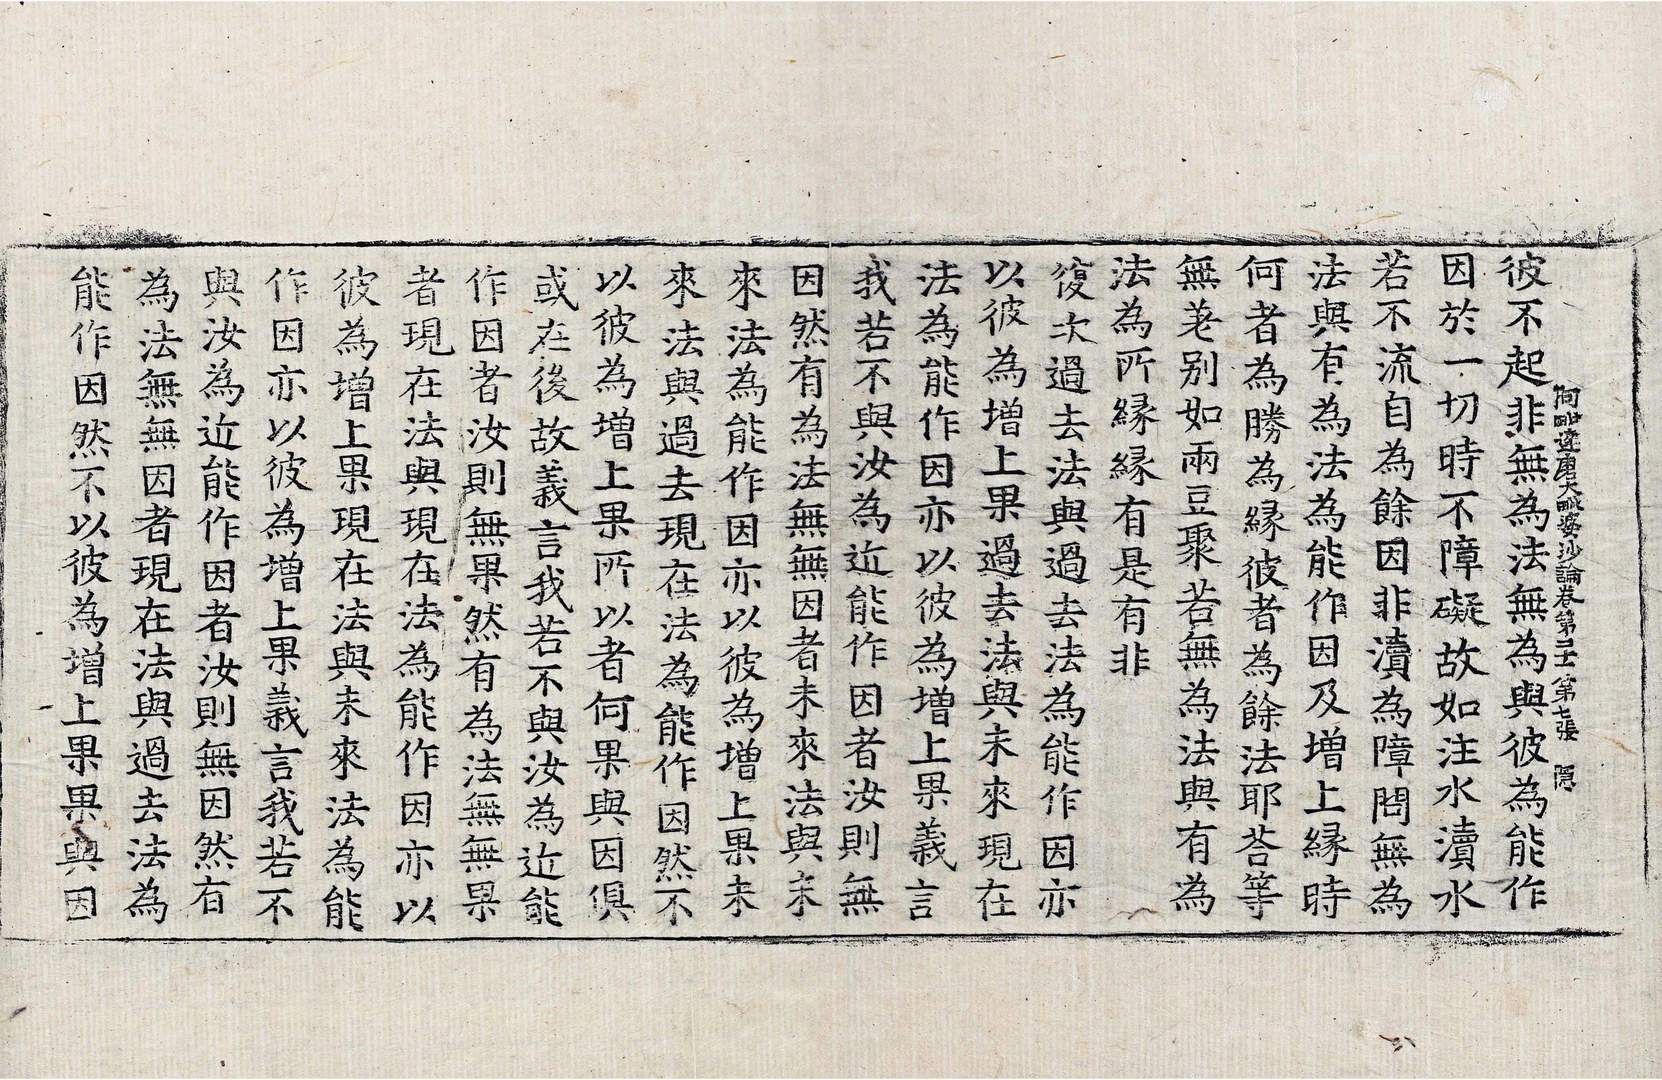 阿毗達磨大毗婆沙論卷第二十一 第七張 隱
彼不起非無為法無為與彼為能作
因於一切時不障礙故如注水瀆水
若不流自為餘因非瀆為障問無為
法與有為法為能作因及增上緣時
何者為勝為緣彼者為餘法耶荅等
無差别如兩豆聚若無為法與有為
法為所緣緣有是有非
復次過去法與過去法為能作因亦
以彼為增上果過去法與未來現在
法為能作因亦以彼為增上果義言
我若不與汝為近能作因者汝則無
因然有為法無無因者未來法與未
來法為能作因亦以彼為增上果未
來法與過去現在法為能作因然不
以彼為增上果所以者何果與因俱
或在後故義言我若不與汝為近能
作因者汝則無果然有為法無無果
者現在法與現在法為能作因亦以
彼為增上果現在法與未來法為能
作因亦以彼為增上果義言我若不
與汝為近能作因者汝則無因然有
為法無無因者現在法與過去法為
能作因然不以彼為增上果果與因